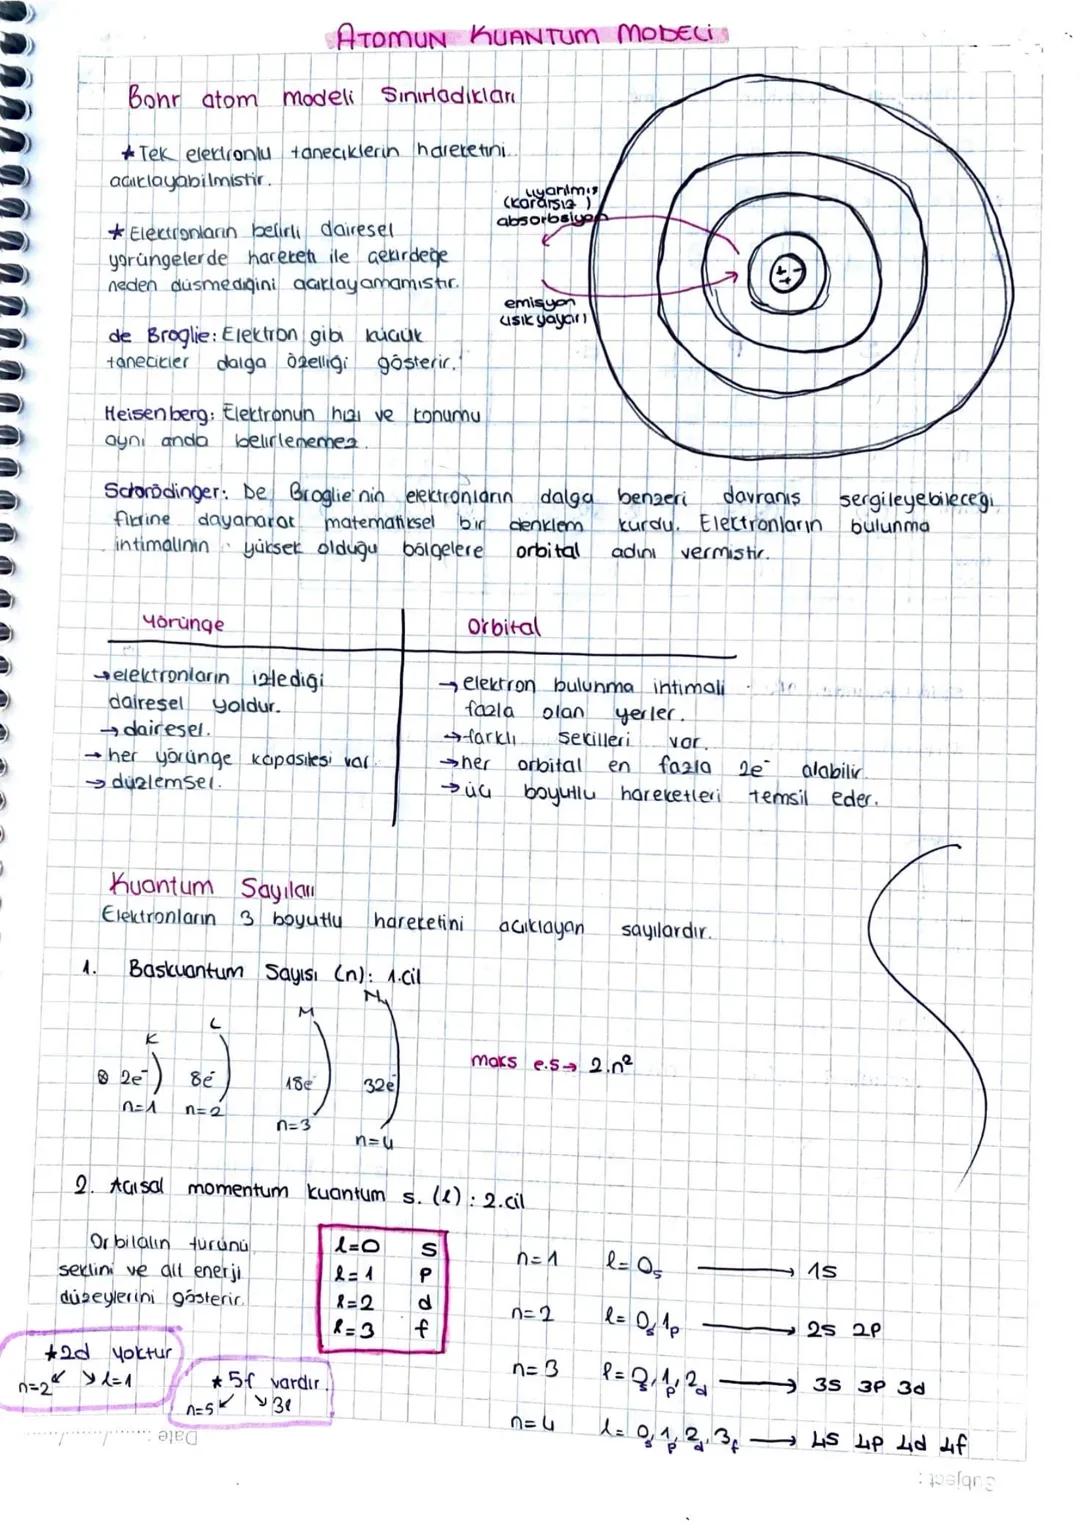 ATOMUN KUANTUM MODELİ
Bohr atom modeli Sınırladıkları
★ Tek elektronlu taneciklerin hareketini
açıklayabilmistir.
★ Elektronların belirli dairesel
yörüngelerde hareketi ile çekirdeğe
neden düsmediğini açıklayamamıstır.
uyarılmış
(kararsız)
absorbsiyon
emisyon
(ışık yayar)
de Broglie: Elektron gibi küçük
tanecikler dalga özelliği gösterir.
Heisenberg: Elektronun hızı ve konumu
aynı anda belirlenemez.
Schrödinger: De Broglie'nin elektronların dalga benzeri davranıs sergileyebileceği
fikrine dayanarak matematiksel bir denklem kurdu. Elektronların bulunma
ihtimalinin yüksek olduğu bölgelere orbital adını vermistir.
Yörünge
Orbital
→ elektronların izlediği
dairesel yoldur.
→ dairesel.
→ her yörünge kapasitesi var.
→ düzlemsel.
→ elektron bulunma ihtimali
fazla olan yerler.
→ farklı sekilleri var.
→ her orbital en fazla 2e⁻ alabilir.
→ üç boyutlu hareketleri temsil eder.
Kuantum Sayıları
Elektronların 3 boyutlu hareketini açıklayan sayılardır.
1. Baskuantum Sayısı (n): 1.cil
K L M N
2e⁻ 8e⁻ 18e⁻ 32e⁻
n=1 n=2 n=3 n=4
maks e.s → 2.n²
2. Açısal momentum kuantum s. (l): 2.cil
Orbitalin türünü
seklini ve alt enerji
düzeylerini gösterir.
l=0 s
l=1 p
l=2 d
l=3 f
n=1 l=0s → 1s
n=2 l=0s, 1p → 2s 2p
n=3 l=0s, 1p, 2d → 3s 3p 3d
n=4 l=0s, 1p, 2d, 3f → 4s 4p 4d 4f
★ 2d yoktur
n=2 l=1
★ 5f vardır.
n=5 3l
Date : ....../....../......
Subject :